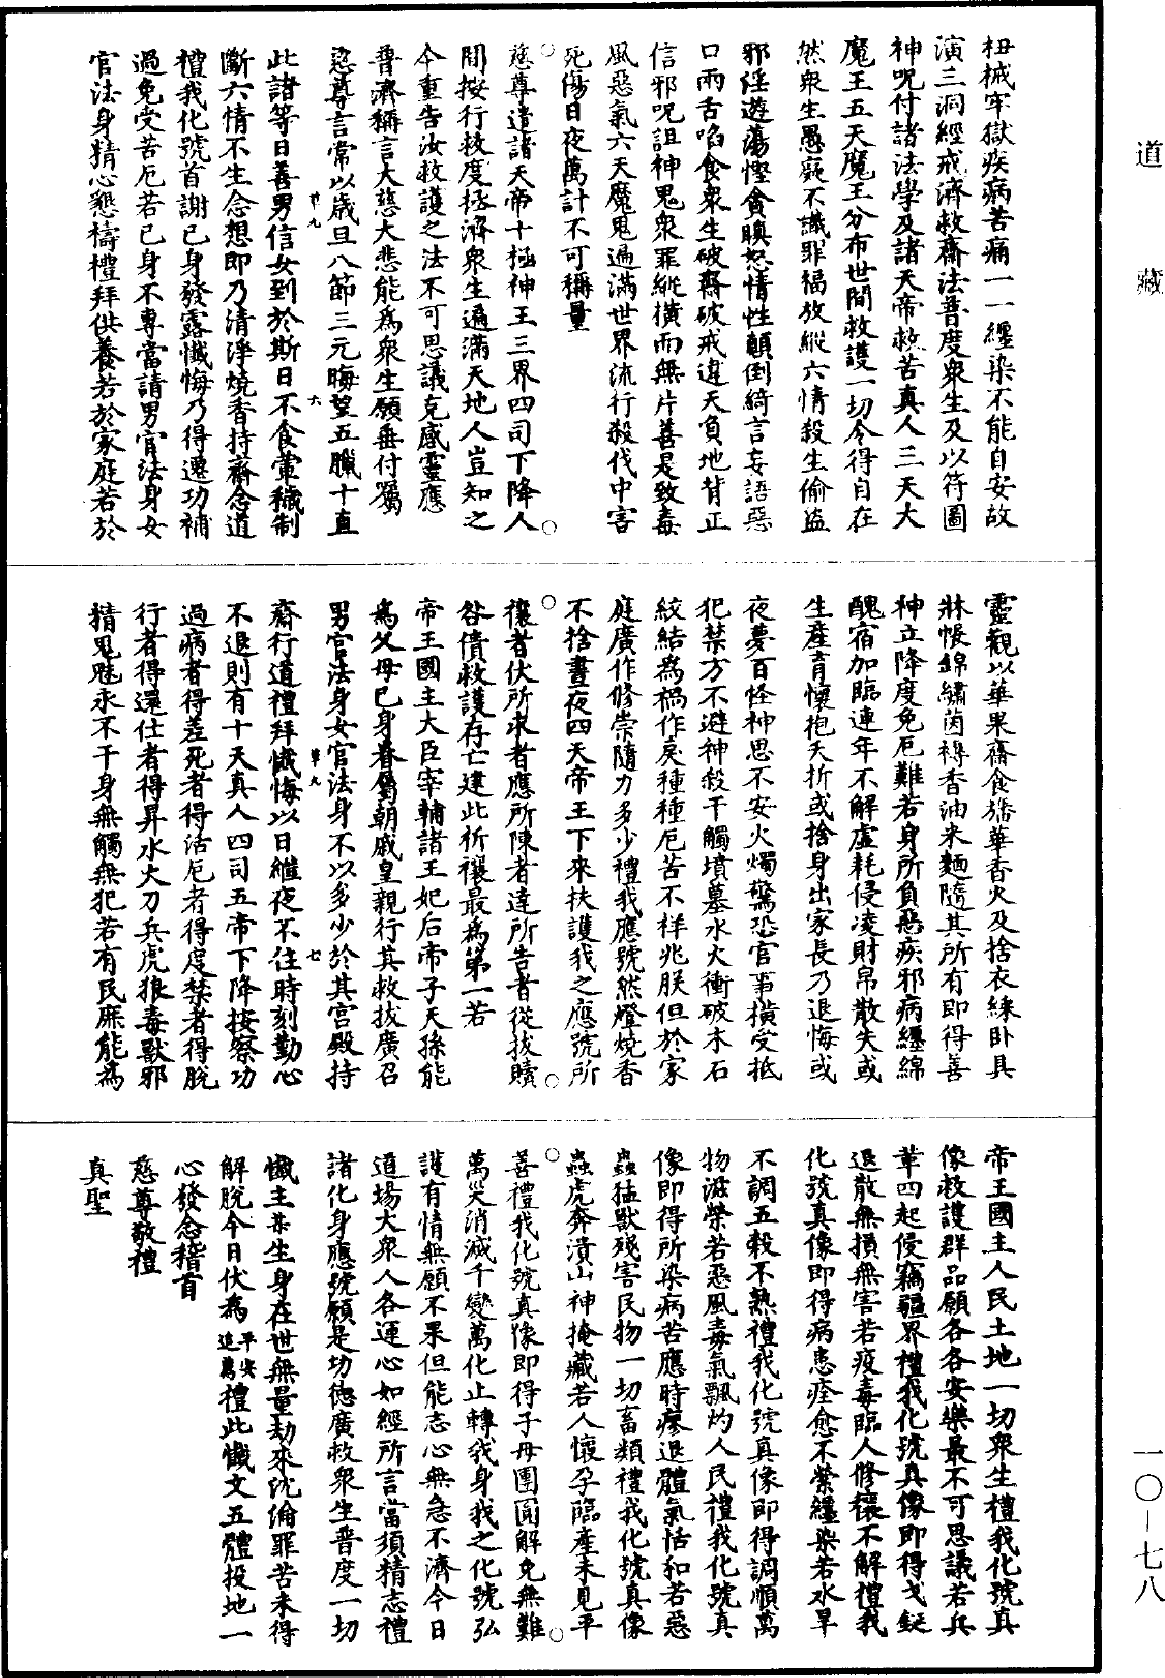 道藏
杻械牢獄疾病苦痛一一纏染不能自安故
演三洞經戒濟救齋法普度衆生及以符圖
神呪付諸法學及諸天帝救苦真人三天大
魔王五天魔王分布世間救護一切令得自在
然衆生愚癡不識罪福放縱六情殺生偷盜
邪淫遊蕩慳貪瞋怒情性顛倒綺言妄語惡
口兩舌啗食衆生破齋破戒違天負地背正
信邪呪詛神鬼衆罪縱橫而無片善是致毒
風惡氣六天魔鬼遍滿世界流行殺伐中害
死傷日夜萬計不可稱量
慈尊遣諸天帝十極神王三界四司下降人
間按行救度拯濟衆生遍滿天地人豈知之
今重告汝救護之法不可思議克感靈應
普濟稱言大慈大悲能爲衆生願垂付囑
慈尊言常以歲旦八節三元晦望五臘十直
此諸等日善男信女到於斯日不食葷穢制
斷六情不生念想即乃清淨燒香持齋念道
禮我化號首謝已身發露懺悔乃得遷功補
過免受苦厄若已身不專當請男官法身女
官法身精心懇禱禮拜供養若於家庭若於
靈觀以華果齋食旛華香火及捨衣緣卧具
牀帳綿繡茵褥香油米麵隨其所有即得善
神立降度免厄難若身所負惡疾邪病纏綿
醜宿加臨連年不解虛耗侵凌財帛散失或
生產育懷抱夭折或捨身出家長乃退悔或
夜夢百怪神思不安火燭驚恐官事橫受抵
犯禁方不避神殺干觸墳墓水火衝破木石
絞結為禍作戾種種厄苦不祥兆朕但於家
庭廣作修崇隨力多少禮我應號然燈燒香
不捨晝夜四天帝王下來扶護我之應號所
禳者伏所求者應所陳者達所告者從拔贖
咎債救護存亡建此祈禳最爲第一若
帝王國主大臣宰輔諸王妃后帝子天孫能
爲父母已身眷屬朝戚皇親行其救拔廣召
男官法身女官法身不以多少於其宮殿持
齋行道禮拜懺悔以日繼夜不住時刻勤心
不退則有十天真人四司五帝下降按察功
過病者得差死者得活厄者得度禁者得脫
行者得還仕者得昇水火刀兵虎狼毒獸邪
精鬼魅永不干身無觸無犯若有民庶能為
帝王國主人民土地一切衆生禮我化號真
像救護群品願各各安樂最不可思議若兵
革四起侵竊疆界禮我化號真像即得戈鋋
退散無損無害若疫毒臨人修禳不解禮我
化號真像即得病患痊愈不縈纏染若水旱
不調五穀不熟禮我化號真像即得調順萬
物滋榮若惡風毒氣飄灼人民禮我化號真
像即得所染病苦應時瘳退體氣恬和若惡
蟲猛獸殘害民物一切畜類禮我化號真像
蟲虎奔潰山神掩藏若人懷孕臨產未見平
善禮我化號真像即得子母團圓解免無難
萬災消滅千變萬化止轉我身我之化號弘
護有情無願不果但能志心無急不濟今日
道場大衆人各運心如經所言當須精志禮
諸化身應號願是功德廣救衆生普度一切
懺主某生身在世無量劫來沈淪罪苦未得
解脫今日伏為平安追薦禮此懺文五體投地一
心發念稽首
慈尊敬禮
真聖
一〇—七八